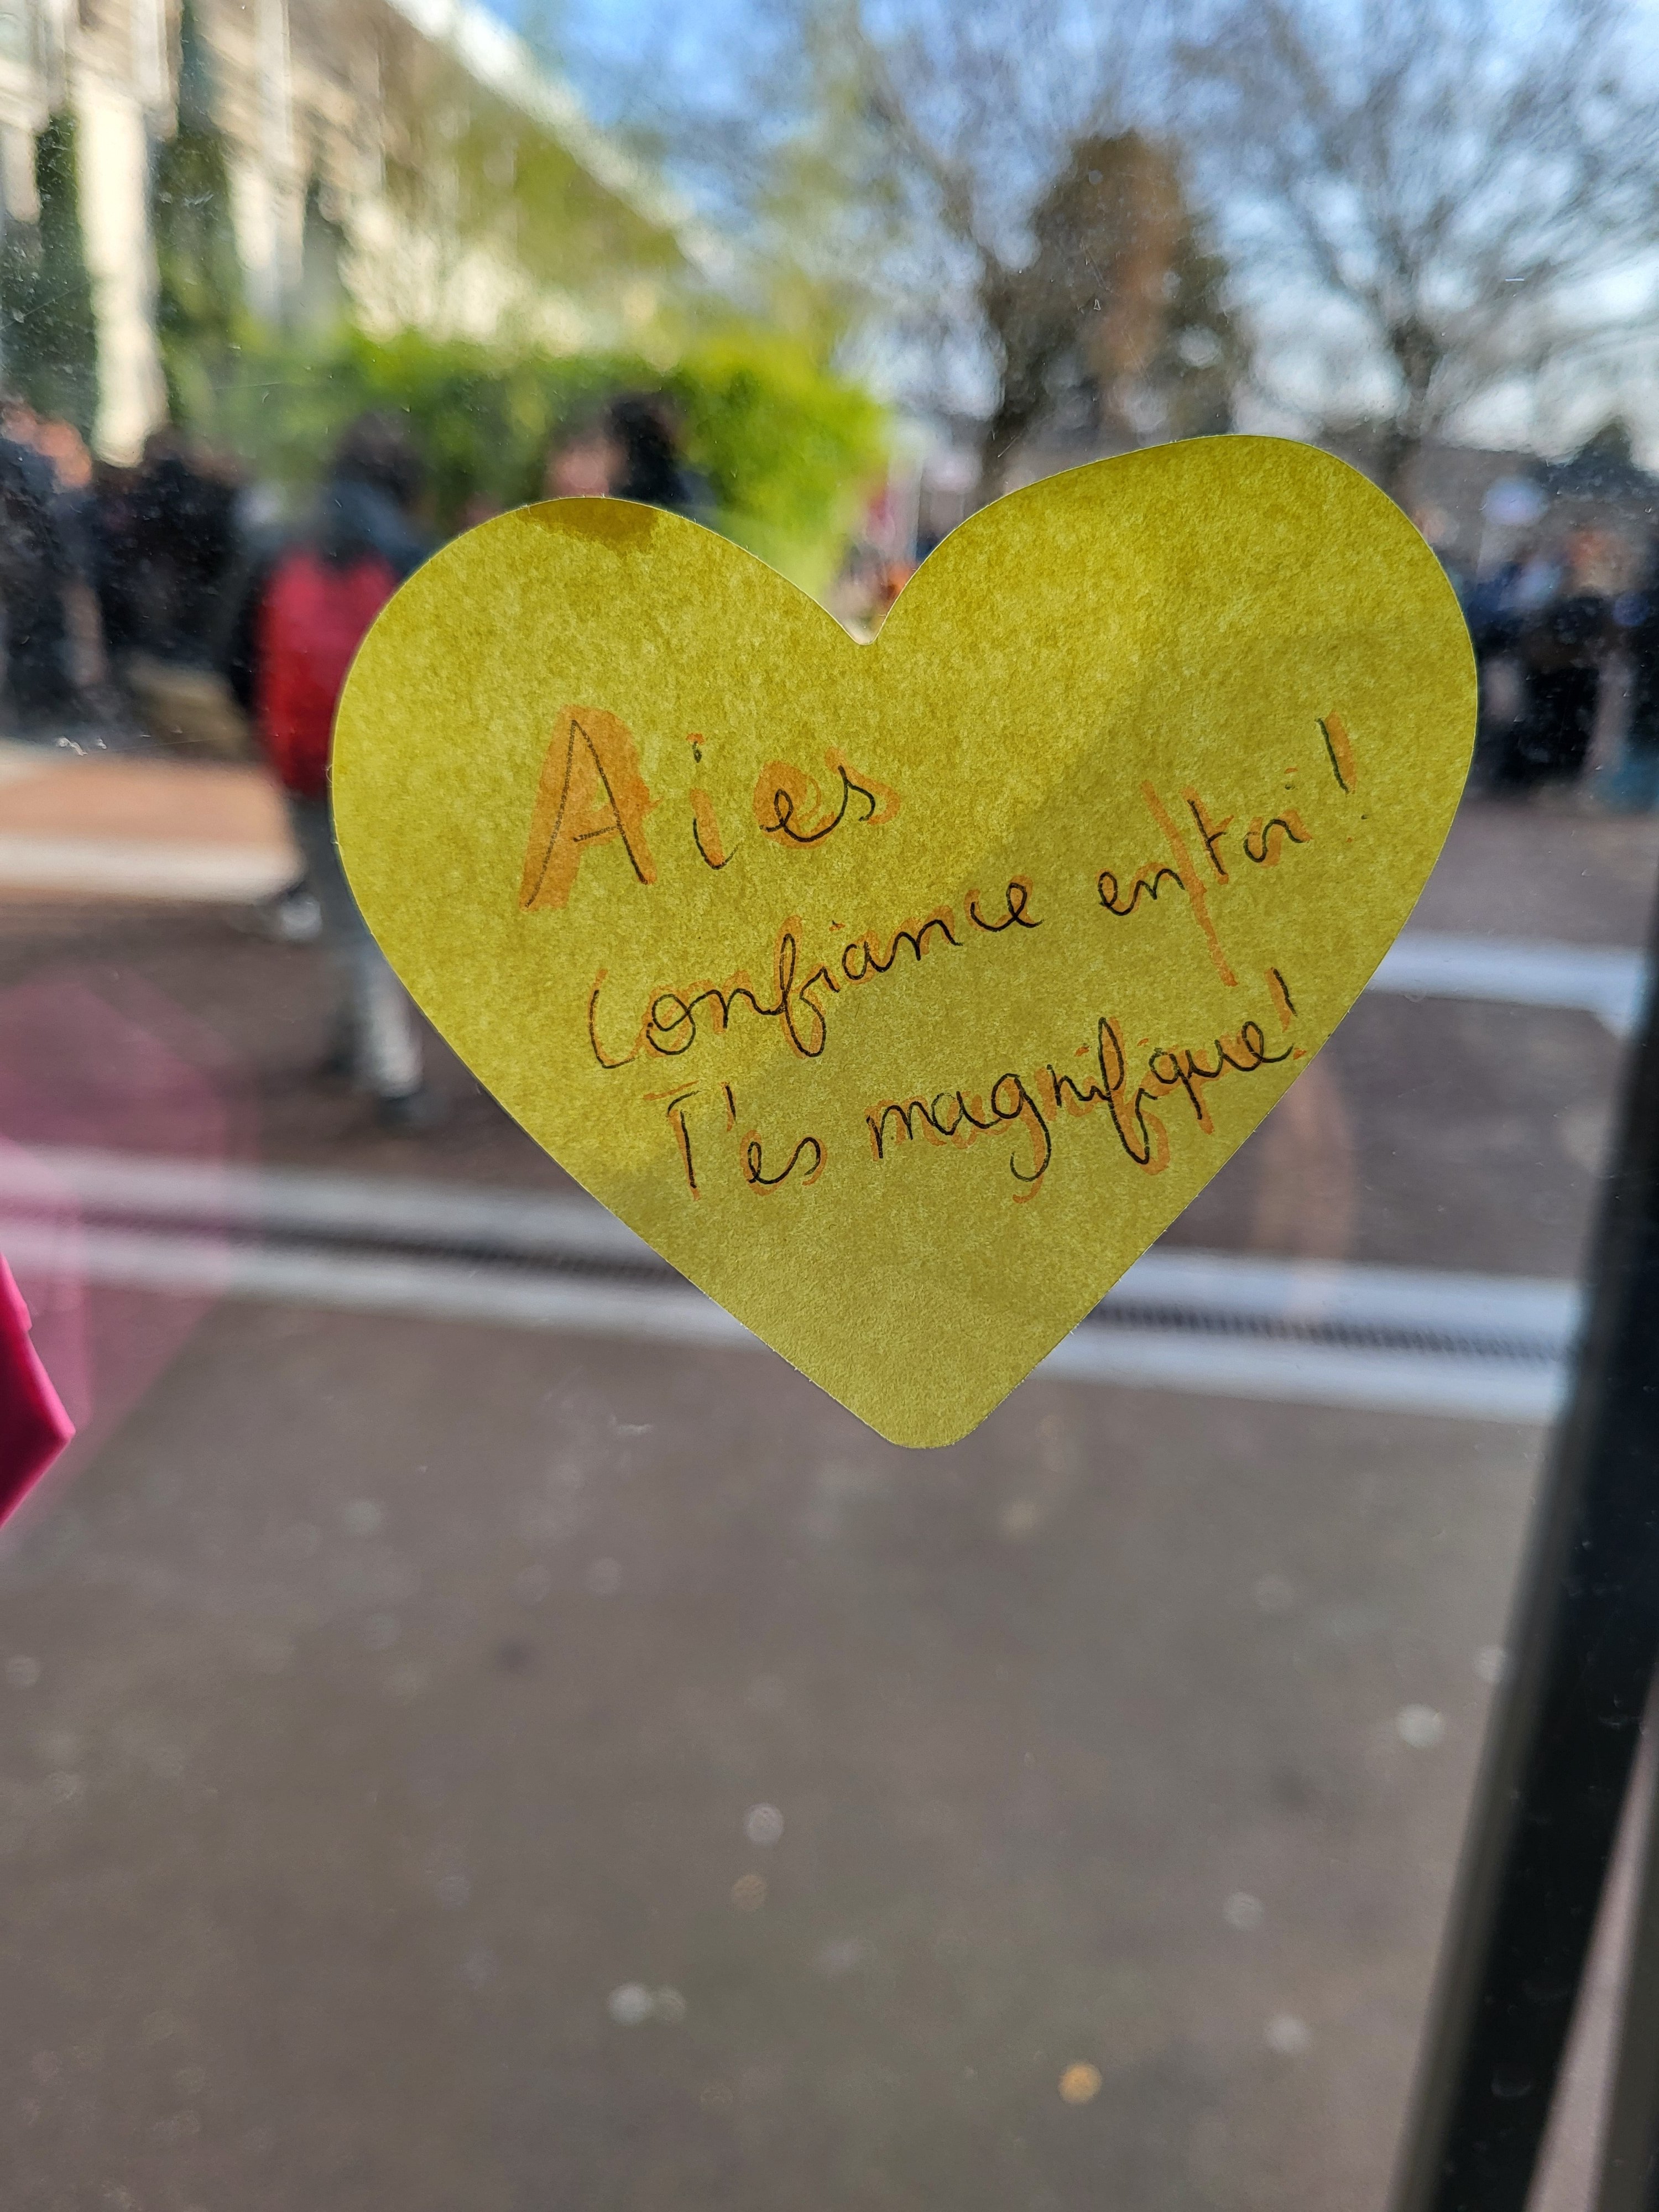 Aies
confiance en/toi!
T'es magnifique!